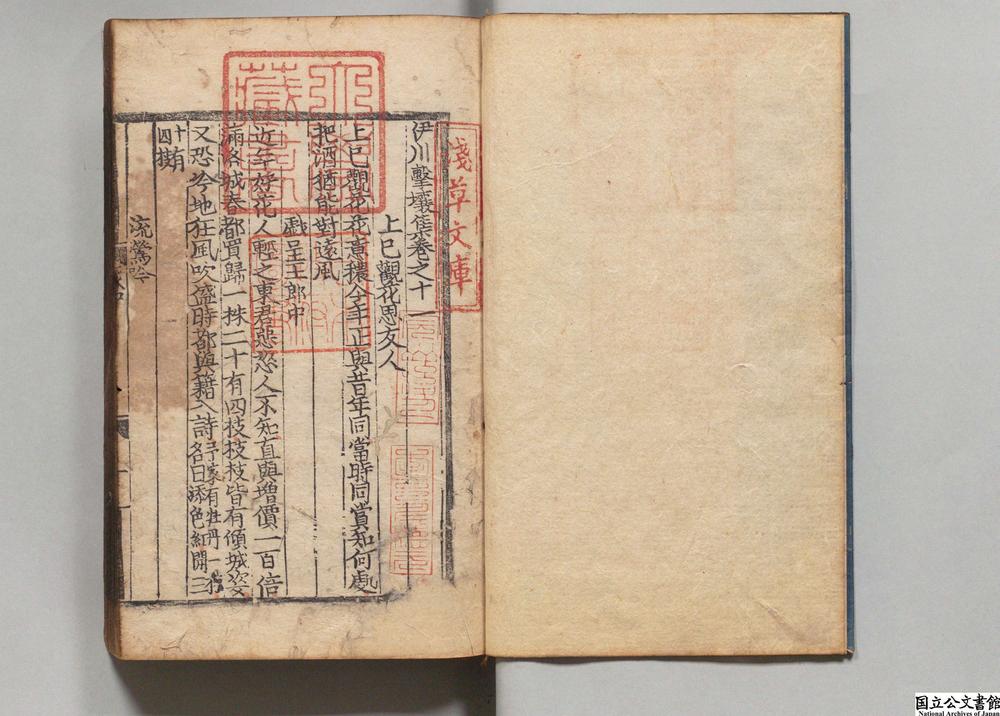 淺草文庫
伊川擊壤集卷之十一
上巳觀花思友人
上巳觀花花意穠今年正與昔年同當時同賞知何處
把酒猶能對遠風
戲呈王郎中
近年好花人輕之東君惡怒人不知直與增價一百倍
滿洛城春都買歸一株二十有四枝枝枝皆有傾城姿
又恐冷地狂風吹盛時都與籍入詩予家有牡丹一
名曰添色紅開三
十有
四枝
流鶯吟
国立公文書館
National Archives of Japan